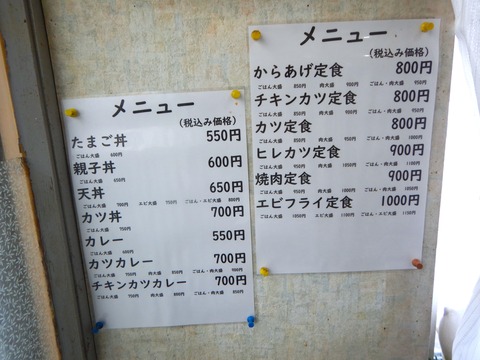 メニュー
(税込み価格)
たまご丼 550円
ごはん大盛 600円
親子丼 600円
ごはん大盛 650円
天丼 650円
ごはん大盛 700円 エビ大盛 750円 ごはん・エビ大盛 800円
カツ丼 700円
ごはん大盛 750円
カレー 550円
ごはん大盛 600円
カツカレー 700円
ごはん大盛 750円 肉大盛 850円 ごはん・肉大盛 900円
チキンカツカレー 700円
ごはん大盛 750円 肉大盛 800円 ごはん・肉大盛 850円
メニュー
(税込み価格)
からあげ定食 800円
ごはん大盛 850円 肉大盛 900円 ごはん・肉大盛 950円
チキンカツ定食 800円
ごはん大盛 850円 肉大盛 900円 ごはん・肉大盛 950円
カツ定食 800円
ごはん大盛 850円 肉大盛 950円 ごはん・肉大盛
ヒレカツ定食 900円
ごはん大盛 950円 肉大盛 1050円 ごはん・肉大盛 1100円
焼肉定食 900円
ごはん大盛 950円 肉大盛 1000円 ごはん・肉大盛 1050円
エビフライ定食 1000円
ごはん大盛 1050円 エビ大盛 1100円 ごはん・エビ大盛 1150円